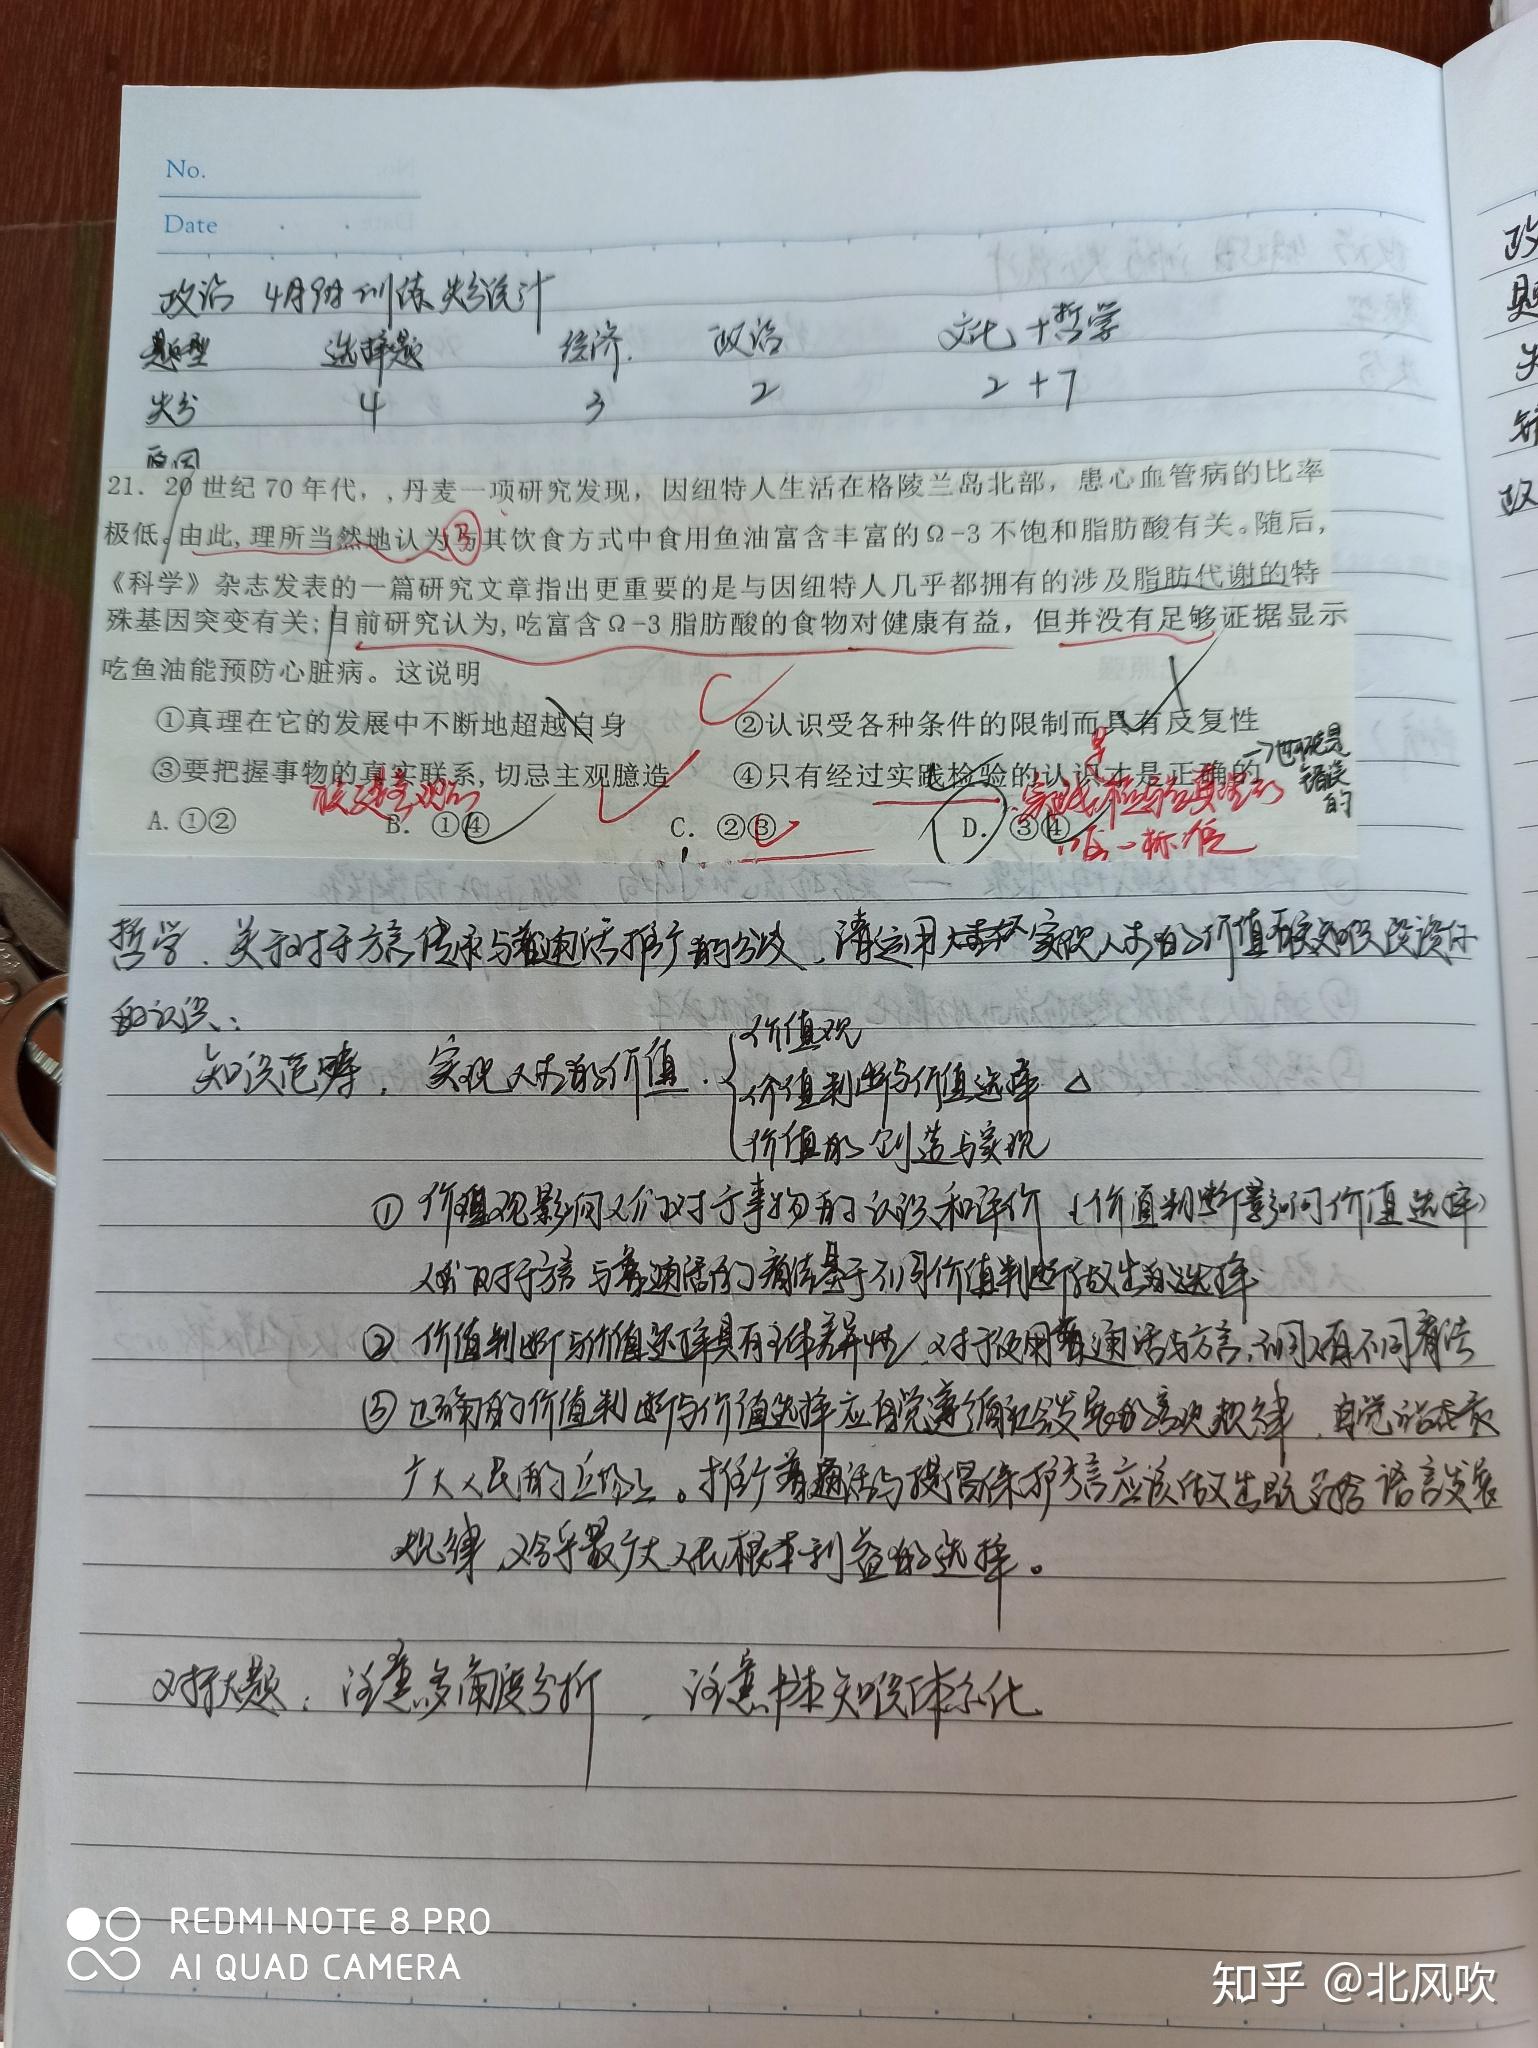 No.
Date
政治 4月9日训练失分统计
题型 选择题 经济 政治 文化+哲学
失分 4 3 2 2+7
原因
21. 20世纪70年代，，丹麦一项研究发现，因纽特人生活在格陵兰岛北部，患心血管病的比率
极低。由此，理所当然地认为与其饮食方式中食用鱼油富含丰富的Ω-3不饱和脂肪酸有关。随后，
《科学》杂志发表的一篇研究文章指出更重要的是与因纽特人几乎都拥有的涉及脂肪代谢的特
殊基因突变有关；目前研究认为，吃富含Ω-3脂肪酸的食物对健康有益，但并没有足够证据显示
吃鱼油能预防心脏病。这说明
①真理在它的发展中不断地超越自身 ②认识受各种条件的限制而具有反复性
③要把握事物的真实联系，切忌主观臆造 ④只有经过实践检验的认识才是正确的
→也可能是错误的
反对主观
实践是检验真理的唯一标准
A.①② B.①④ C.②③ D.③④
哲学．关于对于方言传承与普通话推广的分歧，请运用实现人生的价值有关知识谈谈你
的认识：
知识范畴．实现人生的价值．
价值观
价值判断与价值选择 △
价值的创造与实现
① 价值观影响人们对于事物的认识和评价（价值判断影响价值选择）
人们对于方言与普通话的看法基于不同价值判断做出的选择
② 价值判断与价值选择具有主体差异性，对于使用普通话与方言，不同人有不同看法
③ 正确的价值判断与价值选择应自觉遵循社会发展的客观规律，自觉站在最
广大人民的立场上。推行普通话与提倡保护方言应该做出既符合语言发展
规律，又合乎最广大人民根本利益的选择。
对于大题：注意多角度分析，注意书本知识体系化
REDMI NOTE 8 PRO
AI QUAD CAMERA
知乎 @北风吹